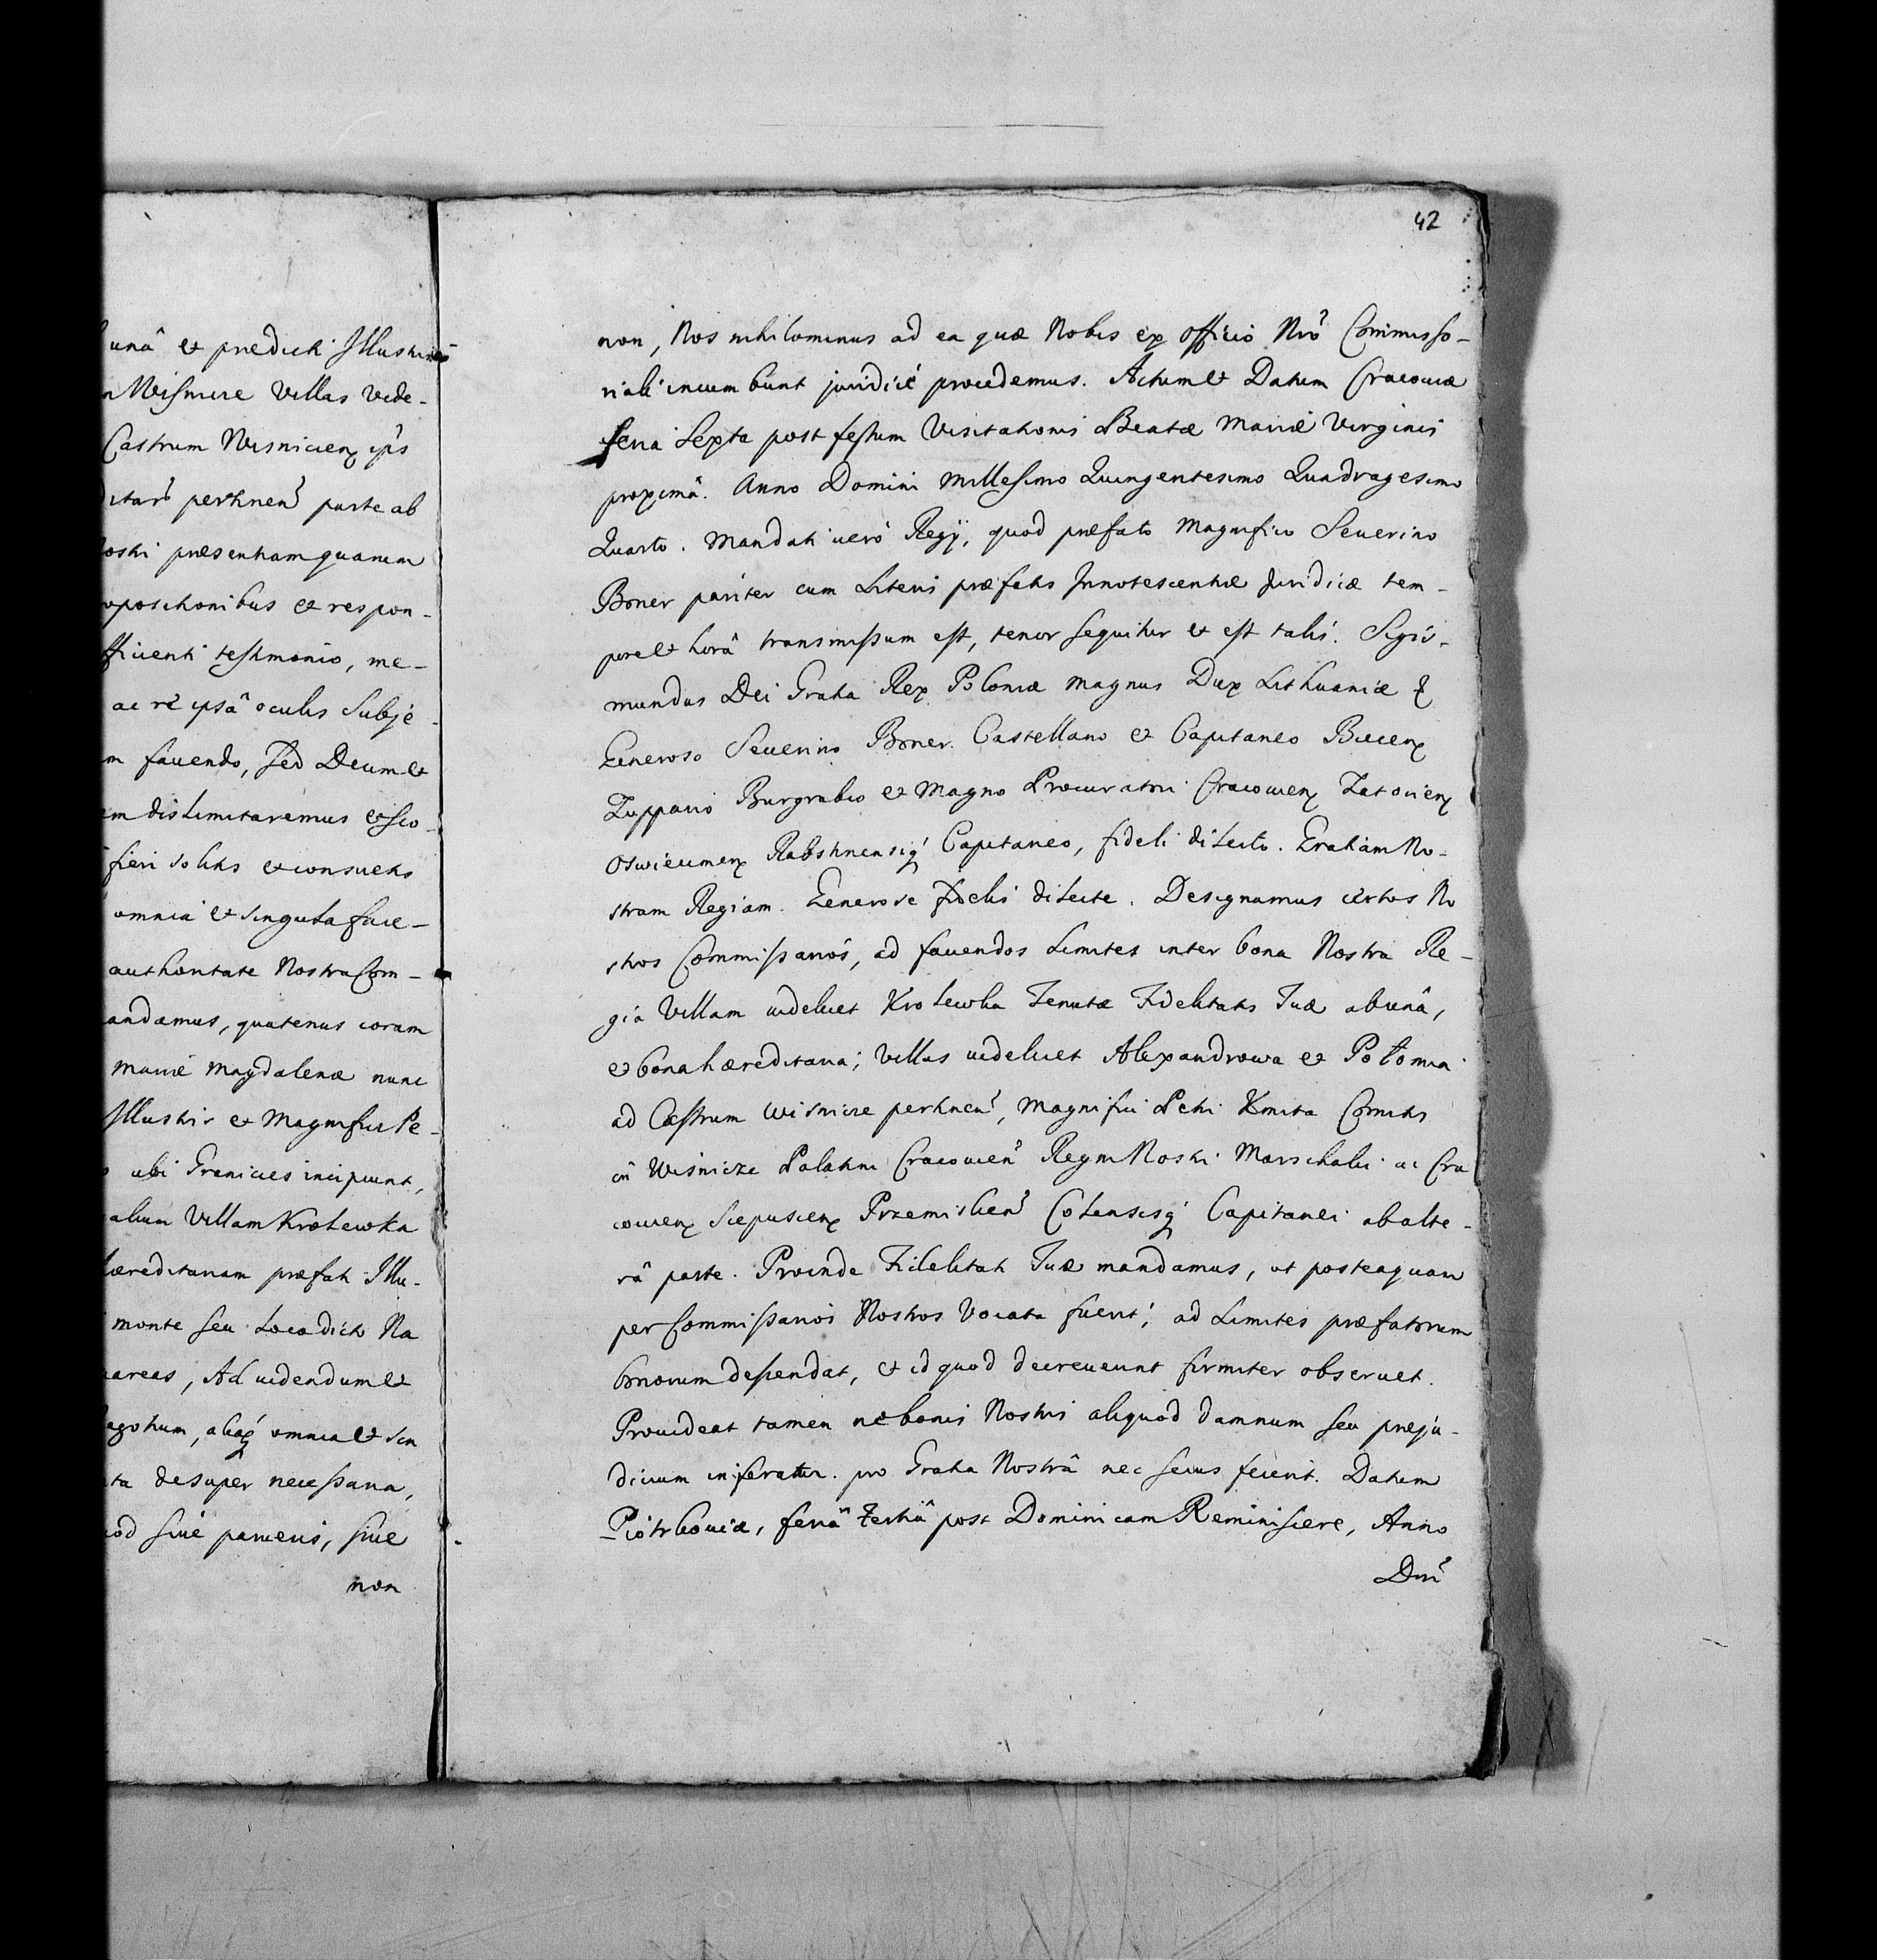 unâ et predicti Illustris
n Wisnicze Villas vide-
Castrum Wisnicien ips
ditar pertinen parte ab
ostri præsentiam quarum
opositionibus et respon-
fficienti testimonio, me-
ac re ipsâ oculis Subje-
m fauendo, sed Deum et
em dislimitaremus et sco-
fieri solitis et consuetis
omnia et singula face-
authoritate Nostra Com-
andamus, quatenus coram
Mariæ Magdalenæ nunc
Illustris et Magnifici Pe-
ubi Granicies incipiunt,
alium Villam Krolewka
hæreditariam præfati Illu-
monte seu Loco dicto Na
pareas, Ad videndum et
agotium, aliaq omnia et sin
ta desuper necessaria,
od siue parueris, siue
non
42
non, Nos nihilominus ad ea quæ Nobis ex officio Nro Commisso-
riali incumbunt juridice procedemus. Actum et Datum Cracouiæ
feria Sexta post festum Visitationis Beatæ Mariæ Virginis
proximâ. Anno Domini Millesimo Quingentesimo Quadragesimo
Quarto. Mandati vero Regij, quod præfato Magnifico Seuerino
Boner pariter cum Literis præfatis Innotescentiæ Juridicæ tem-
pore et horâ transmissum est, tenor sequitur et est talis. Sigis-
mundus Dei Gratia Rex Poloniæ Magnus Dux Lithuaniæ &
Generoso Seuerino Boner Castellano et Capitaneo Biecen
Zuppario Burgrabio et Magno Procuratori Cracouien Zatorien
Oswiecimen Rabstinensiq Capitaneo, fideli dilecto. Gratiam No-
stram Regiam. Generose fidelis dilecte. Designamus certos No
stros Commissarios, ad fauendos Limites inter bona Nostra Re-
gia Villam videlicet Krolewka Tenutæ Fidelitatis Tuæ ab unâ,
et bona hæreditaria, Villas videlicet Alexandrowa et Połomia
ad Castrum Wisnicze pertinen, Magnifici Petri Kmita Comitis
in Wisnicze Palatini Cracouien Regni Nostri Marschalci ac Cra
couien Scepusien Przemislien Colensisq Capitanei ab alte-
râ parte. Proinde Fidelitati Tuæ mandamus, ut posteaquam
per Commissarios Nostros Vocata fuerit, ad Limites præfatorum
bonorum descendat, et id quod decreuerint firmiter obseruet.
Prouideat tamen ne bonis Nostris aliquod damnum seu preju-
dicium inferatur. pro Gratia Nostrâ nec secus fecerit. Datum
Piotrkouiæ, feriâ Tertiâ post Dominicam Reminiscere, Anno
Dni